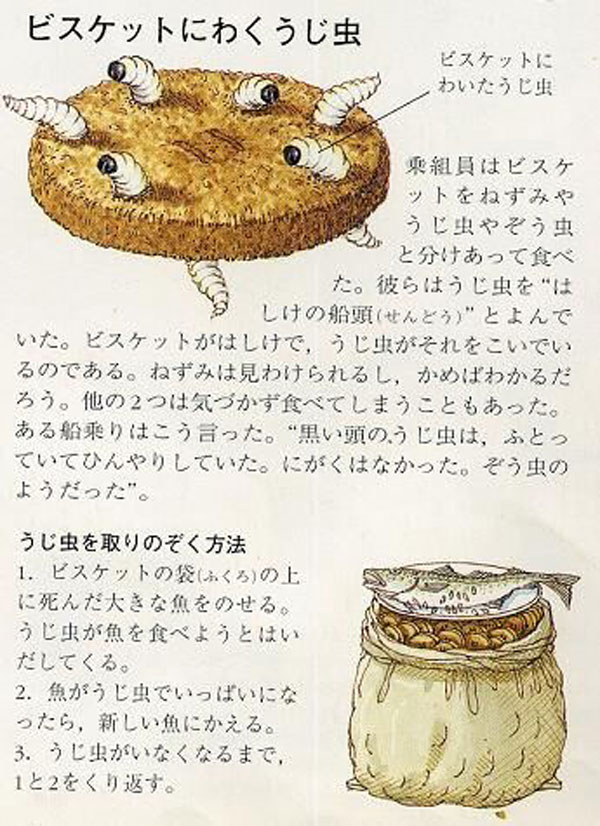 ビスケットにわくうじ虫
ビスケットに
わいたうじ虫
乗組員はビスケ
ットをねずみや
うじ虫やぞう虫
と分けあって食べ
た。彼らはうじ虫を“は
しけの船頭(せんどう)”とよんで
いた。ビスケットがはしけで，うじ虫がそれをこいでい
るのである。ねずみは見わけられるし，かめばわかるだ
ろう。他の2つは気づかず食べてしまうこともあった。
ある船乗りはこう言った。“黒い頭のうじ虫は，ふとっ
ていてひんやりしていた。にがくはなかった。ぞう虫の
ようだった”。
うじ虫を取りのぞく方法
1. ビスケットの袋(ふくろ)の上
に死んだ大きな魚をのせる。
うじ虫が魚を食べようとはい
だしてくる。
2. 魚がうじ虫でいっぱいにな
ったら，新しい魚にかえる。
3. うじ虫がいなくなるまで，
1と2をくり返す。